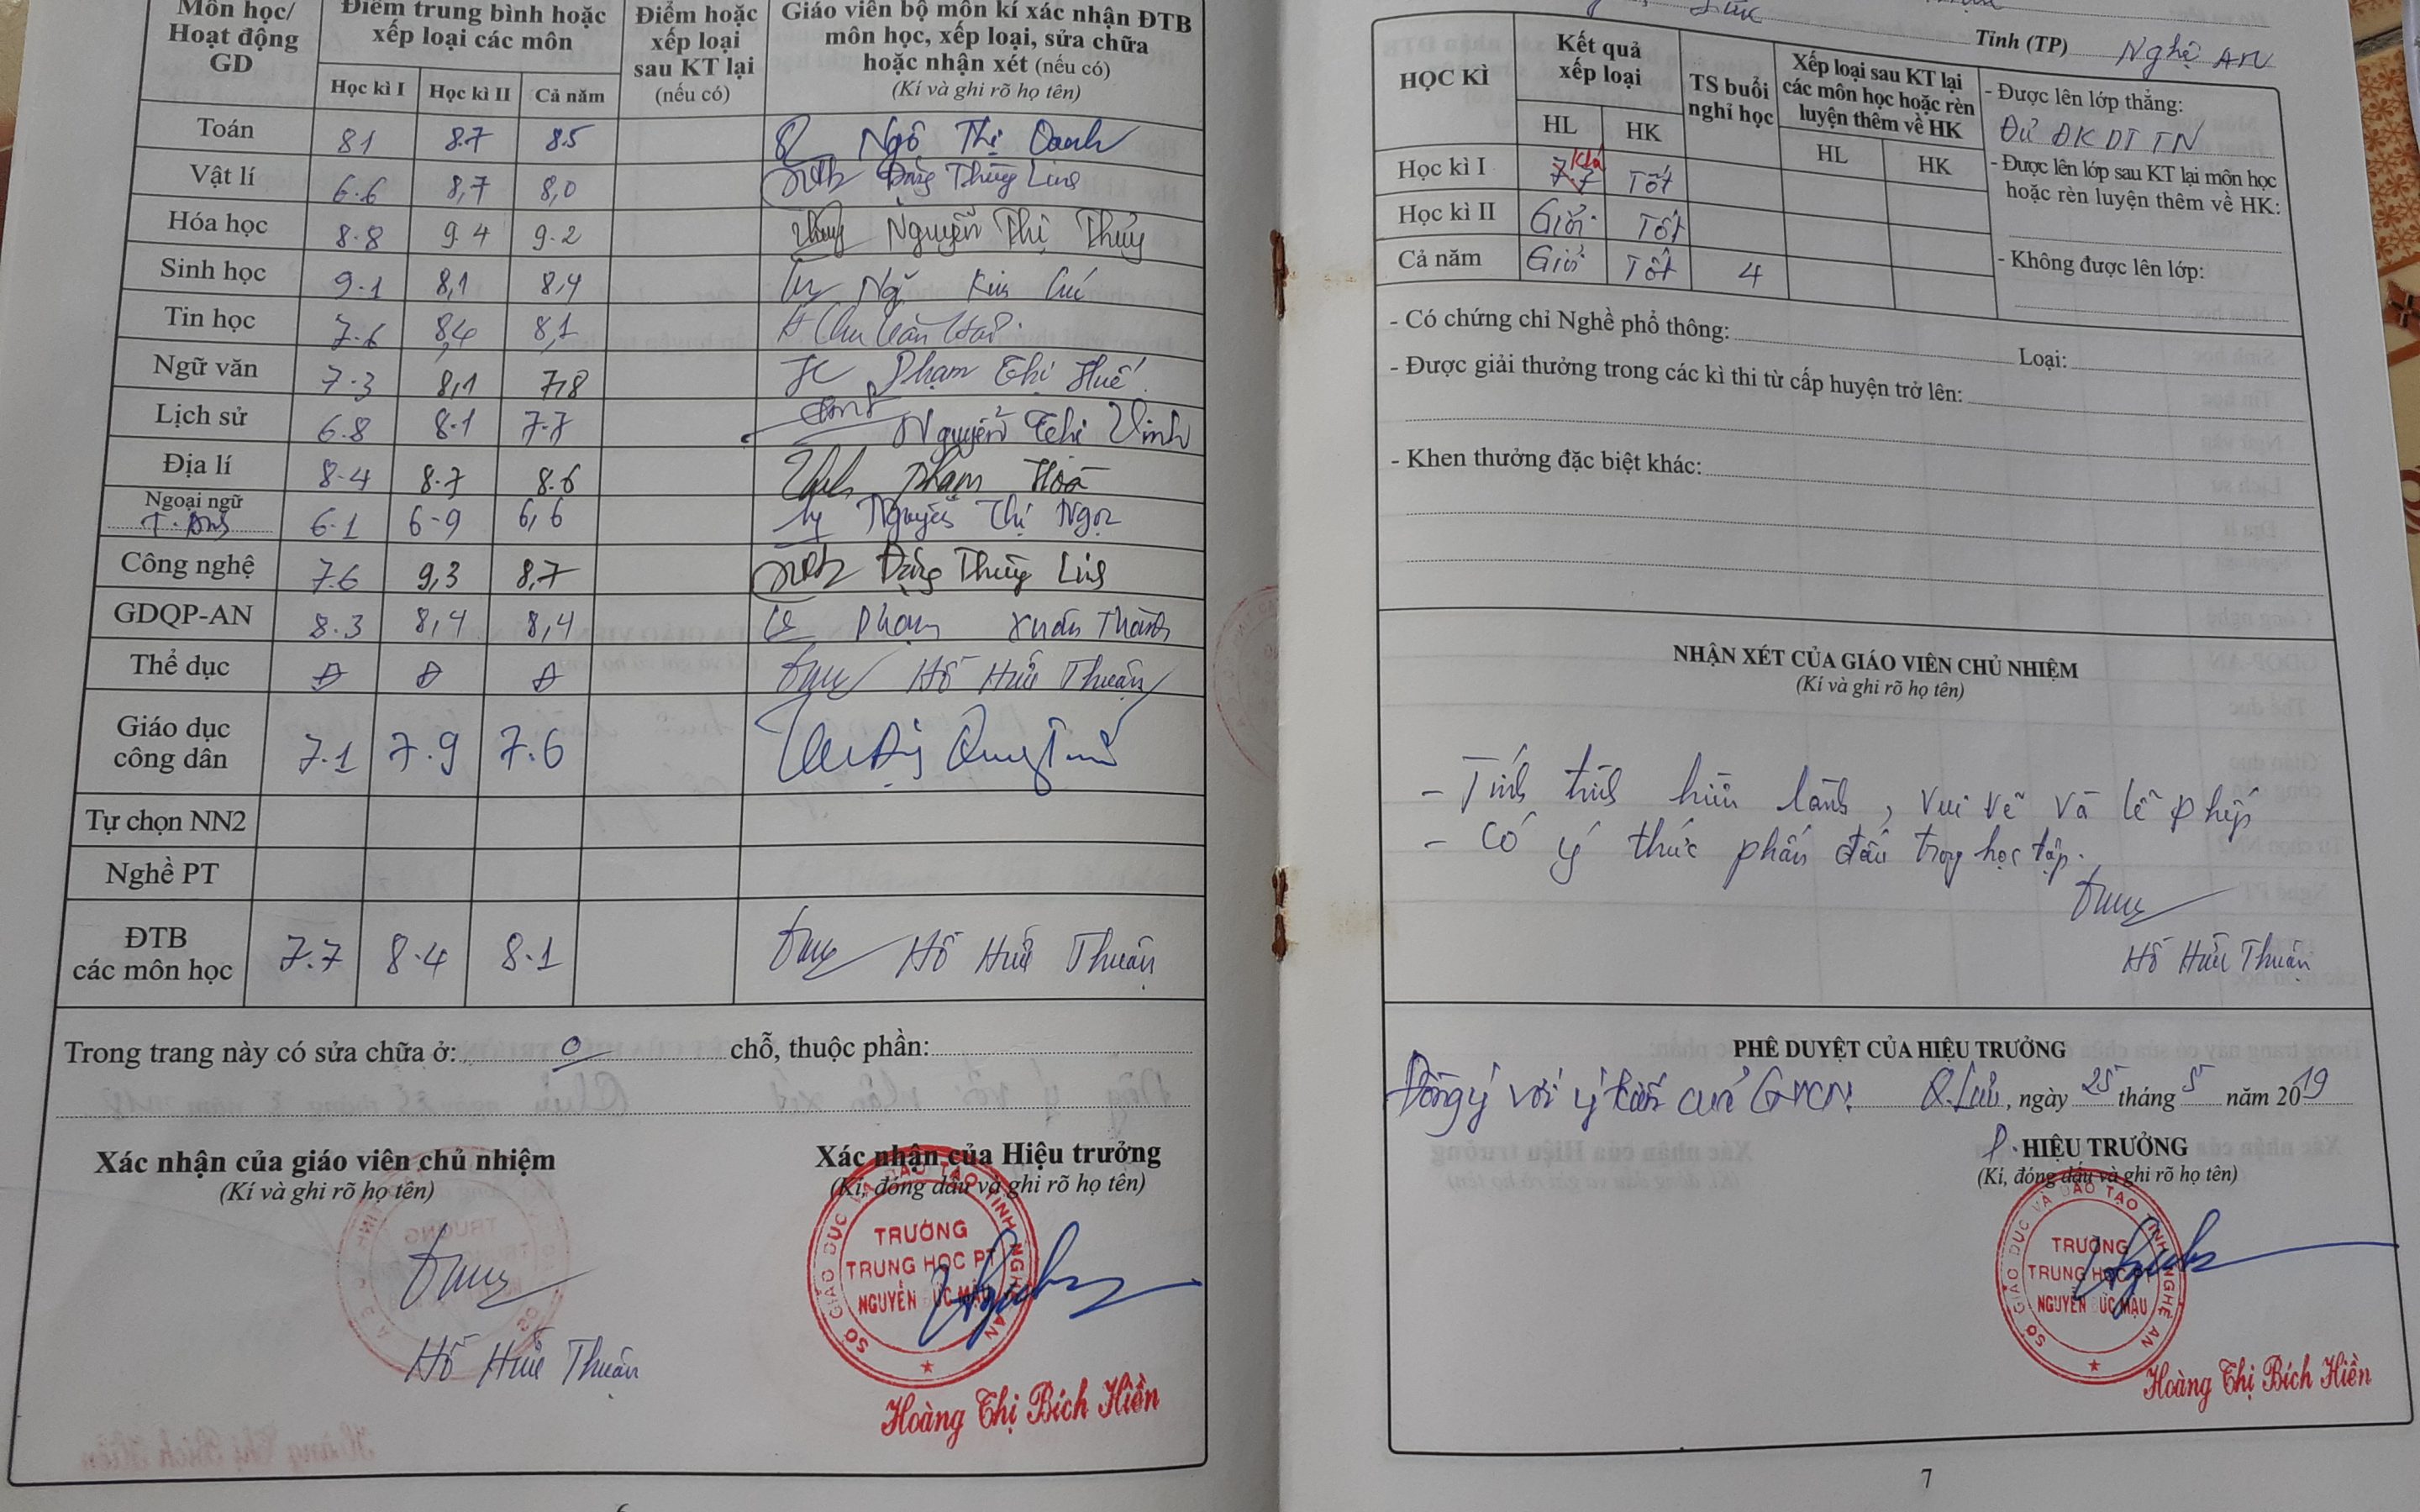 Môn học/ Hoạt động GD | Điểm trung bình hoặc xếp loại các môn | Điểm hoặc xếp loại sau KT lại (nếu có) | Giáo viên bộ môn kí xác nhận ĐTB môn học, xếp loại, sửa chữa hoặc nhận xét (nếu có) (Kí và ghi rõ họ tên)
Học kì I | Học kì II | Cả năm
Toán 8.1 8.7 8.5 Ngô Thị Oanh
Vật lí 6.6 8,7 8,0 Đặng Thùy Linh
Hóa học 8.8 9.4 9.2 Nguyễn Thị Thủy
Sinh học 9.1 8,1 8,4
Tin học 7.6 8,4 8,1
Ngữ văn 7.3 8,1 7,8 Phạm Thị Huế
Lịch sử 6.8 8.1 7.7 Nguyễn Thị Vinh
Địa lí 8.4 8.7 8.6 Phạm Hoà
Ngoại ngữ
T. Anh 6.1 6.9 6,6 Nguyễn Thị Ngọc
Công nghệ 7.6 9,3 8,7 Đặng Thùy Linh
GDQP-AN 8.3 8,4 8,4 Phạm Xuân Thành
Thể dục Đ Đ Đ Hồ Hữu Thuận
Giáo dục công dân 7.1 7.9 7.6
Tự chọn NN2
Nghề PT
ĐTB các môn học 7.7 8.4 8.1 Hồ Hữu Thuận
Trong trang này có sửa chữa ở: 0 chỗ, thuộc phần:
Xác nhận của giáo viên chủ nhiệm
(Kí và ghi rõ họ tên)
Hồ Hữu Thuận
Xác nhận của Hiệu trưởng
(Kí, đóng dấu và ghi rõ họ tên)
SỞ GIÁO DỤC VÀ ĐÀO TẠO TỈNH NGHỆ AN
TRƯỜNG
TRUNG HỌC PT
NGUYỄN ĐỨC MẬU
Hoàng Thị Bích Hiền
Tỉnh (TP) Nghệ An
HỌC KÌ | Kết quả xếp loại | TS buổi nghỉ học | Xếp loại sau KT lại các môn học hoặc rèn luyện thêm về HK
HL HK HL HK
Học kì I 7.7 Khá Tốt
Học kì II Giỏi Tốt
Cả năm Giỏi Tốt 4
- Được lên lớp thẳng:
Đủ ĐK DT TN
- Được lên lớp sau KT lại môn học
hoặc rèn luyện thêm về HK:
- Không được lên lớp:
- Có chứng chỉ Nghề phổ thông: Loại:
- Được giải thưởng trong các kì thi từ cấp huyện trở lên:
- Khen thưởng đặc biệt khác:
NHẬN XÉT CỦA GIÁO VIÊN CHỦ NHIỆM
(Kí và ghi rõ họ tên)
- Tính tình hiền lành, vui vẻ và lễ phép
- Có ý thức phấn đấu trong học tập.
Hồ Hữu Thuận
PHÊ DUYỆT CỦA HIỆU TRƯỞNG
Đồng ý với ý kiến của GVCN. Q.Lưu, ngày 25 tháng 5 năm 2019
P. HIỆU TRƯỞNG
(Kí, đóng dấu và ghi rõ họ tên)
SỞ GIÁO DỤC VÀ ĐÀO TẠO TỈNH NGHỆ AN
TRƯỜNG
TRUNG HỌC
NGUYỄN ĐỨC MẬU
Hoàng Thị Bích Hiền
7